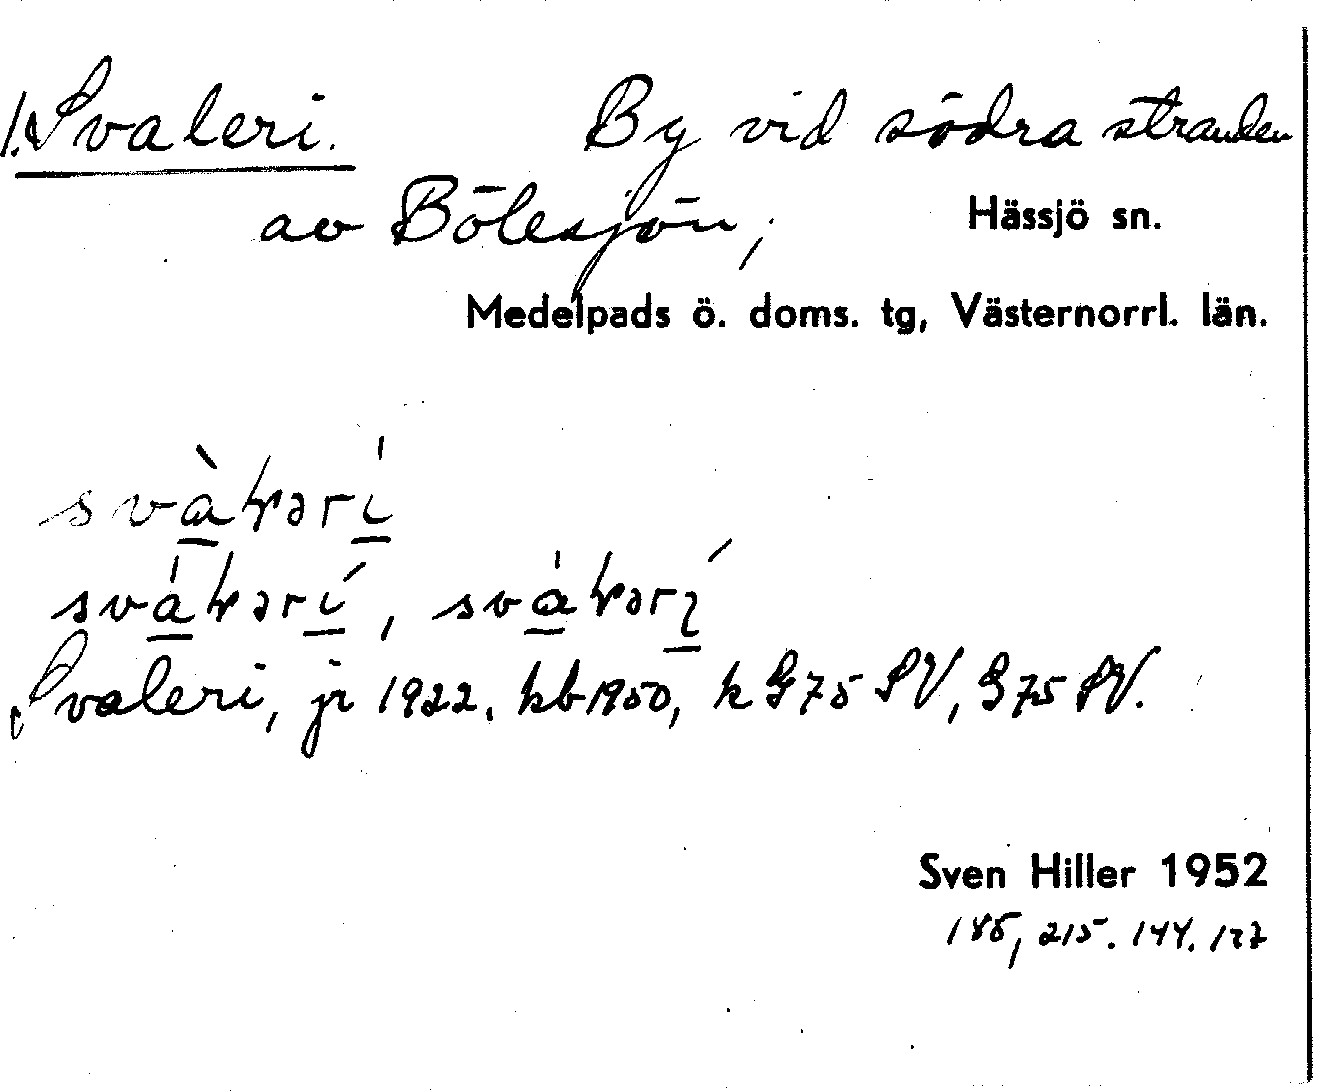 1. Svaleri. By vid södra stranden
av Bölesjön, Hässjö sn.
Medelpads ö. doms. tg, Västernorrl. län.
Svaleri, jr 1922, kb 1950, k G75 SV, G75 SV.
Sven Hiller 1952
215. 144.